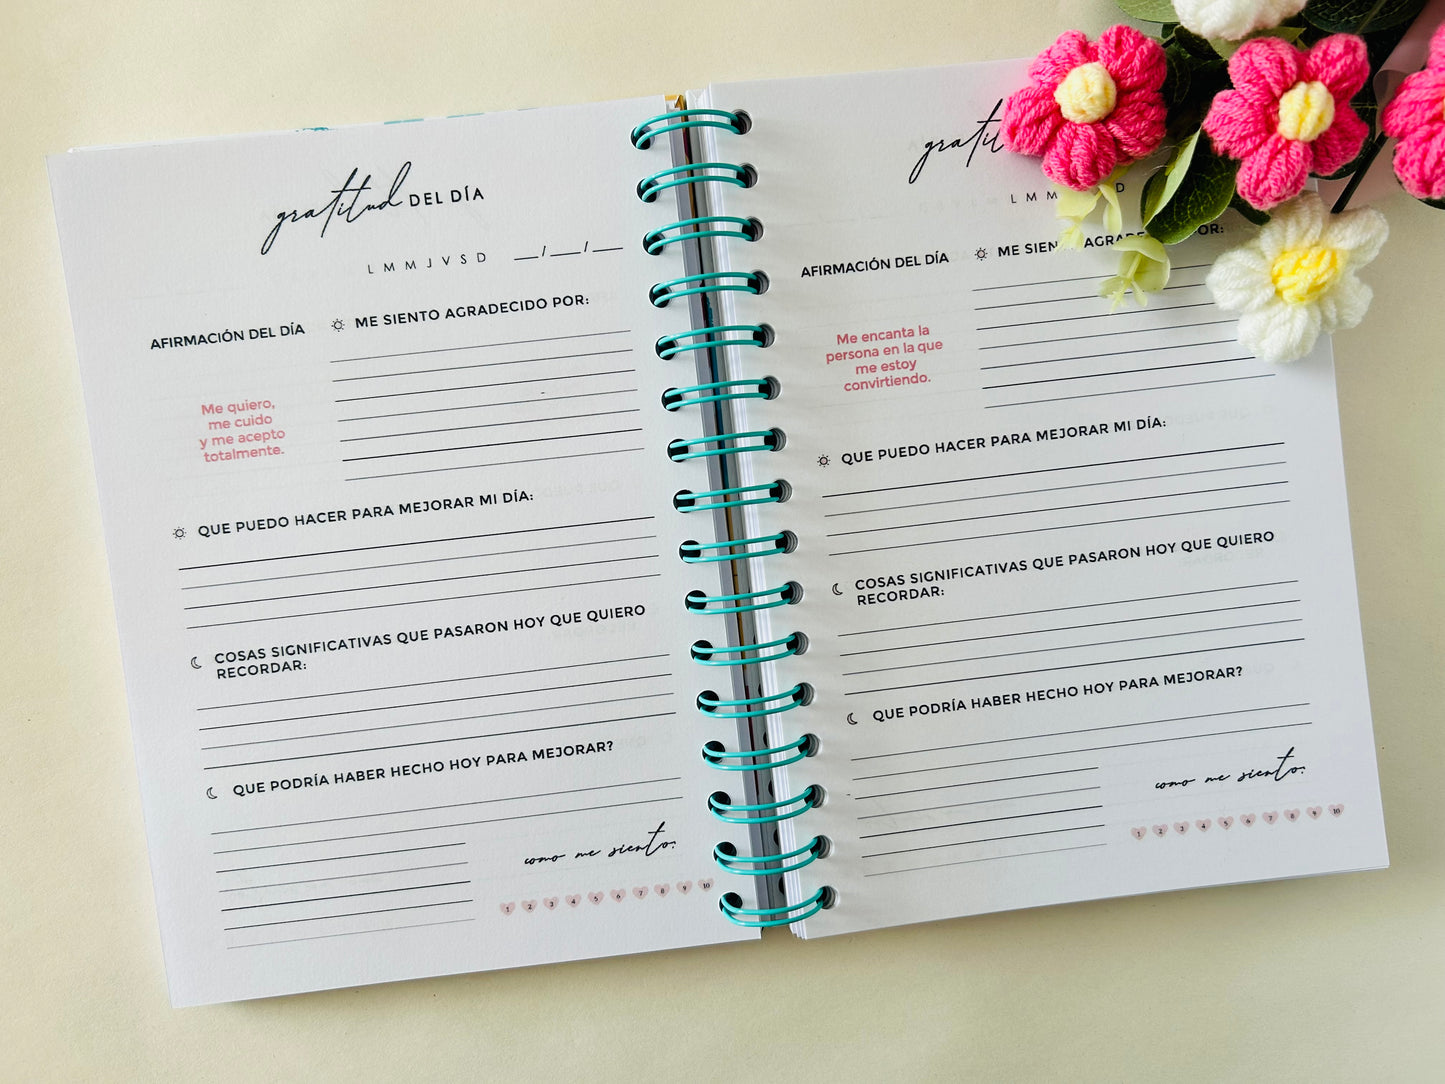 gratitud DEL DÍA
L M M J V S D __/__/__
AFIRMACIÓN DEL DÍA
ME SIENTO AGRADECIDO POR:
Me quiero,
me cuido
y me acepto
totalmente.
QUE PUEDO HACER PARA MEJORAR MI DÍA:
COSAS SIGNIFICATIVAS QUE PASARON HOY QUE QUIERO
RECORDAR:
QUE PODRÍA HABER HECHO HOY PARA MEJORAR?
como me siento?
1 2 3 4 5 6 7 8 9 10
L M M
D
AFIRMACIÓN DEL DÍA
ME SIENTO POR:
Me encanta la
persona en la que
me estoy
convirtiendo.
QUE PUEDO HACER PARA MEJORAR MI DÍA:
COSAS SIGNIFICATIVAS QUE PASARON HOY QUE QUIERO
RECORDAR:
QUE PODRÍA HABER HECHO HOY PARA MEJORAR?
como me siento?
1 2 3 4 5 6 7 8 9 10